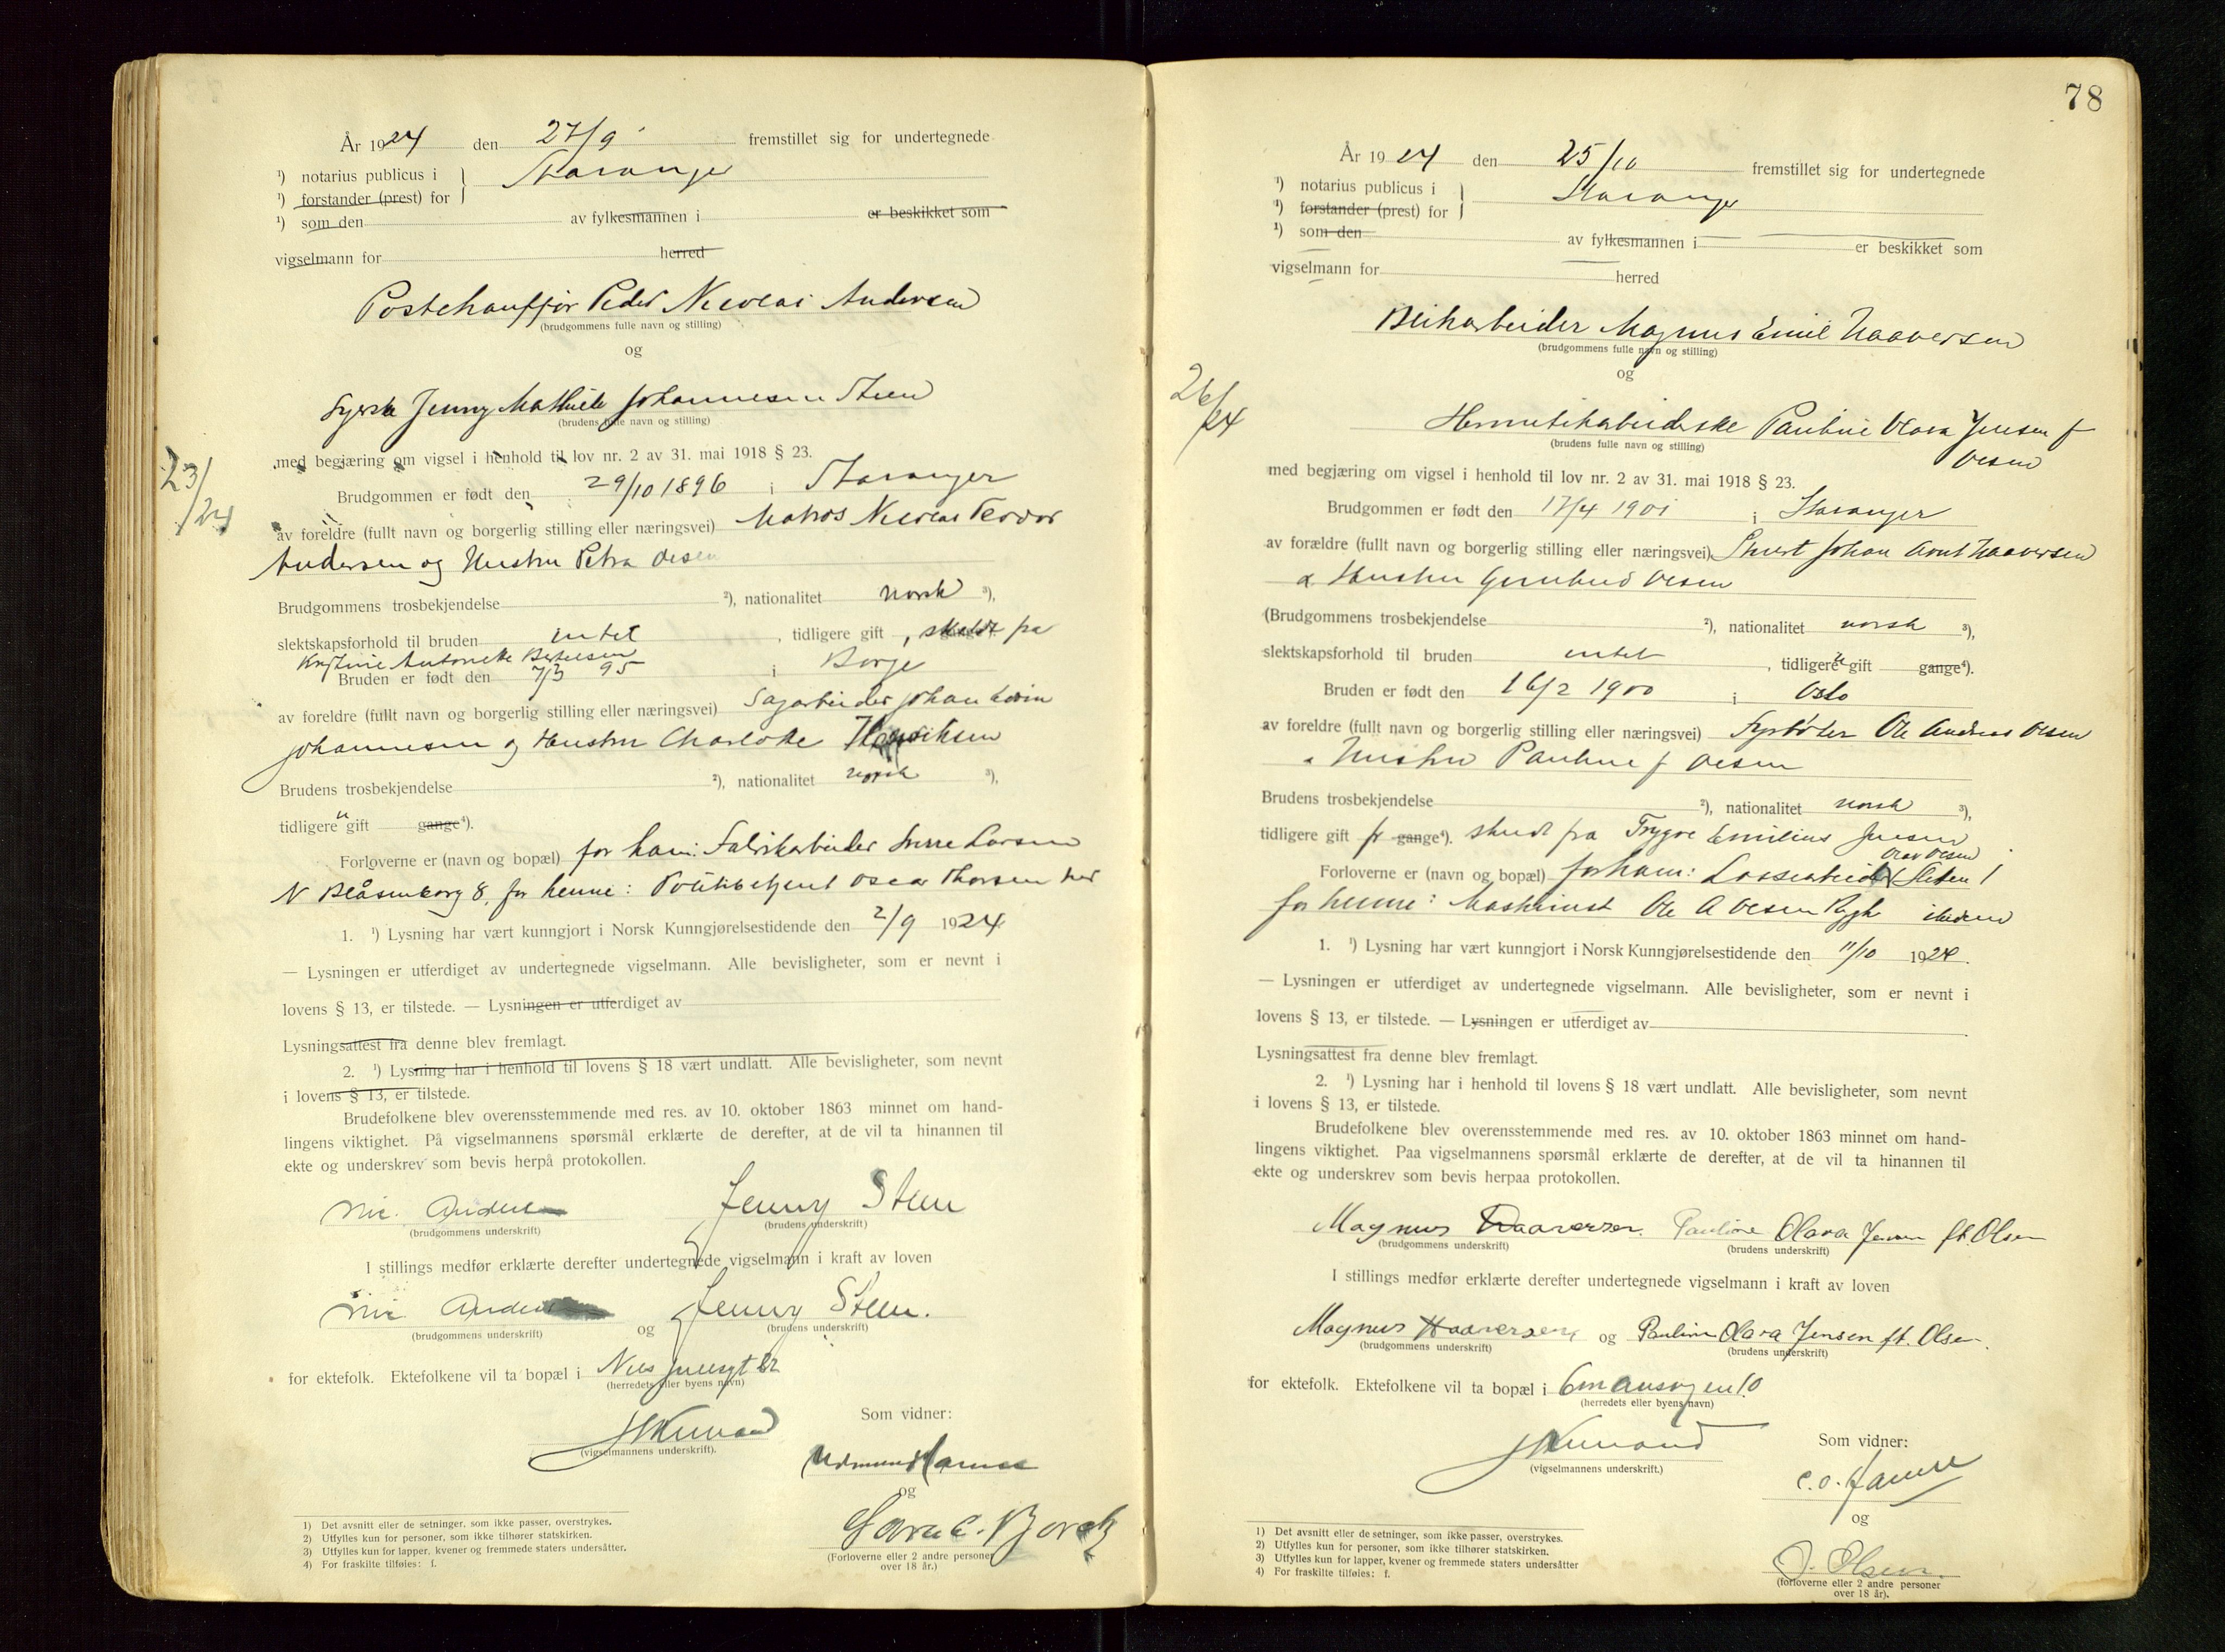 År 1924 den 27/9 fremstillet sig for undertegnede
¹) notarius publicus i } Stavanger
¹) forstander (prest) for
¹) som den av fylkesmannen i er beskikket som
vigselmann for herred
Postchauffør Peder Nicolai Andersen
(brudgommens fulle navn og stilling)
og
23/24
Syerske Jenny Mathilde Johannesen Steen
(brudens fulle navn og stilling)
med begjæring om vigsel i henhold til lov nr. 2 av 31. mai 1918 § 23.
Brudgommen er født den 29/10 1896 i Stavanger
av foreldre (fullt navn og borgerlig stilling eller næringsvei) Matros Nicolai Teodor
Andersen og Hustru Petra Olsen
Brudgommens trosbekjendelse ²), nationalitet norsk ³),
slektskapsforhold til bruden intet, tidligere gift 1, skilt fra
Kristine Antonette Bertelsen
Bruden er født den 7/3 95 i Borge
av foreldre (fullt navn og borgerlig stilling eller næringsvei) Sagarbeider Johan Edvin
Johannesen og Hustru Charlotte Henriksen
Brudens trosbekjendelse ²), nationalitet norsk ³),
tidligere u gift gange⁴).
Forloverne er (navn og bopæl) for ham: Fabrikarbeider Sverre Larsen
N Blåsenborg 8, for henne: Politibetjent Oscar Thorsen her
1. ¹) Lysning har vært kunngjort i Norsk Kunngjørelsestidende den 2/9 1924
— Lysningen er utferdiget av undertegnede vigselmann. Alle bevisligheter, som er nevnt i
lovens § 13, er tilstede. — Lysningen er utferdiget av
Lysningsattest fra denne blev fremlagt.
2. ¹) Lysning har i henhold til lovens § 18 vært undlatt. Alle bevisligheter, som nevnt
i lovens § 13, er tilstede.
Brudefolkene blev overensstemmende med res. av 10. oktober 1863 minnet om hand-
lingens viktighet. På vigselmannens spørsmål erklærte de derefter, at de vil ta hinannen til
ekte og underskrev som bevis herpå protokollen.
Nic. Andersen Jenny Steen
(brudgommens underskrift) (brudens underskrift)
I stillings medfør erklærte derefter undertegnede vigselmann i kraft av loven
Nic Andersen og Jenny Steen.
(brudgommens underskrift) (brudens underskrift)
for ektefolk. Ektefolkene vil ta bopæl i Nils
(herredets eller byens navn)
(vigselmannens underskrift).
Som vidner:
og
(Forloverne eller 2 andre personer
over 18 år.)
1) Det avsnitt eller de setninger, som ikke passer, overstrykes.
2) Utfylles kun for personer, som ikke tilhører statskirken.
3) Utfylles kun for lapper, kvener og fremmede staters undersåtter.
4) For fraskilte tilføies: f.
78
År 1924 den 25/10 fremstillet sig for undertegnede
¹) notarius publicus i } Stavanger
¹) forstander (prest) for
¹) som den av fylkesmannen i er beskikket som
vigselmann for herred
Blikarbeider Magnus Emil Haaversen
(brudgommens fulle navn og stilling)
og
26/24
Hermetikarbeiderske Pauline Olava Jensen f
Olsen
(brudens fulle navn og stilling)
med begjæring om vigsel i henhold til lov nr. 2 av 31. mai 1918 § 23.
Brudgommen er født den 17/4 1901 i Stavanger
av forældre (fullt navn og borgerlig stilling eller næringsvei) Stuert Johan Arnt Haaversen
& Hustru Gunhild Olsen
(Brudgommens trosbekjendelse ²), nationalitet norsk ³),
slektskapsforhold til bruden intet, tidligere u gift gange⁴).
Bruden er født den 16/2 1900 i Oslo
av foreldre (fullt navn og borgerlig stilling eller næringsvei) Fyrbøter Ole Andreas Olsen
& Hustru Pauline f Olsen
Brudens trosbekjendelse ²), nationalitet norsk ³),
tidligere gift gange⁴). skilt fra Trygve Emilius Jensen
Olav Olsen
Forloverne er (navn og bopæl) for ham: Lossearbeider
for henne: Maskinist Ole A Olsen
1. ¹) Lysning har vært kunngjort i Norsk Kunngjørelsestidende den 11/10 1924.
— Lysningen er utferdiget av undertegnede vigselmann. Alle bevisligheter, som er nevnt i
lovens § 13, er tilstede. — Lysningen er utferdiget av
Lysningsattest fra denne blev fremlagt.
2. ¹) Lysning har i henhold til lovens § 18 vært undlatt. Alle bevisligheter, som nevnt
i lovens § 13, er tilstede.
Brudefolkene blev overensstemmende med res. av 10. oktober 1863 minnet om hand-
lingens viktighet. Paa vigselmannens spørsmål erklærte de derefter, at de vil ta hinannen til
ekte og underskrev som bevis herpaa protokollen.
Magnus Haaversen. Pauline Olava Jensen ft. Olsen
(brudgommens underskrift) (brudens underskrift)
I stillings medfør erklærte derefter undertegnede vigselmann i kraft av loven
Magnus Haaversen og Pauline Olava Jensen ft. Olsen.
(brudgommens underskrift) (brudens underskrift)
for ektefolk. Ektefolkene vil ta bopæl i
(herredets eller byens navn)
(vigselmannens underskrift.)
Som vidner:
og
O. Olsen.
(forloverne eller 2 andre personer
over 18 år).
1) Det avsnitt eller de setninger, som ikke passer, overstrykes.
2) Utfylles kun for personer, som ikke tilhører statskirken.
3) Utfylles kun for lapper, kvener og fremmede staters undersåtter
4) For fraskilte tilføies: f.